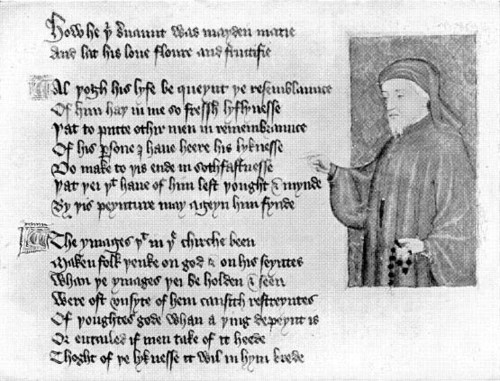 How he þͬ seruaunt was mayden marie
And lat his loue floure and fructifie
Al þogh his lyfe be queynt þe resemblaunce
Of him haþ in me so fressh lyflynesse
Þat to putte othir men in remembraunce
Of his persone I haue heere his lyknesse
Do make to þis ende in sothfastnesse
Þat þei þͭ haue of him left þought & mynde
By þis peynture may ageyn him fynde
The ymages þͭ in þͤ chirche been
Maken folk þenke on god & on his seyntes
Whan þe ymages þei be holden & seen
Were oft vnsyte of hem causith restreyntes
Of þoughtes gode whan a þing depeynt is
Or entailed if men take of it heede
Thoght of þe lyknesse it wil in hym brede